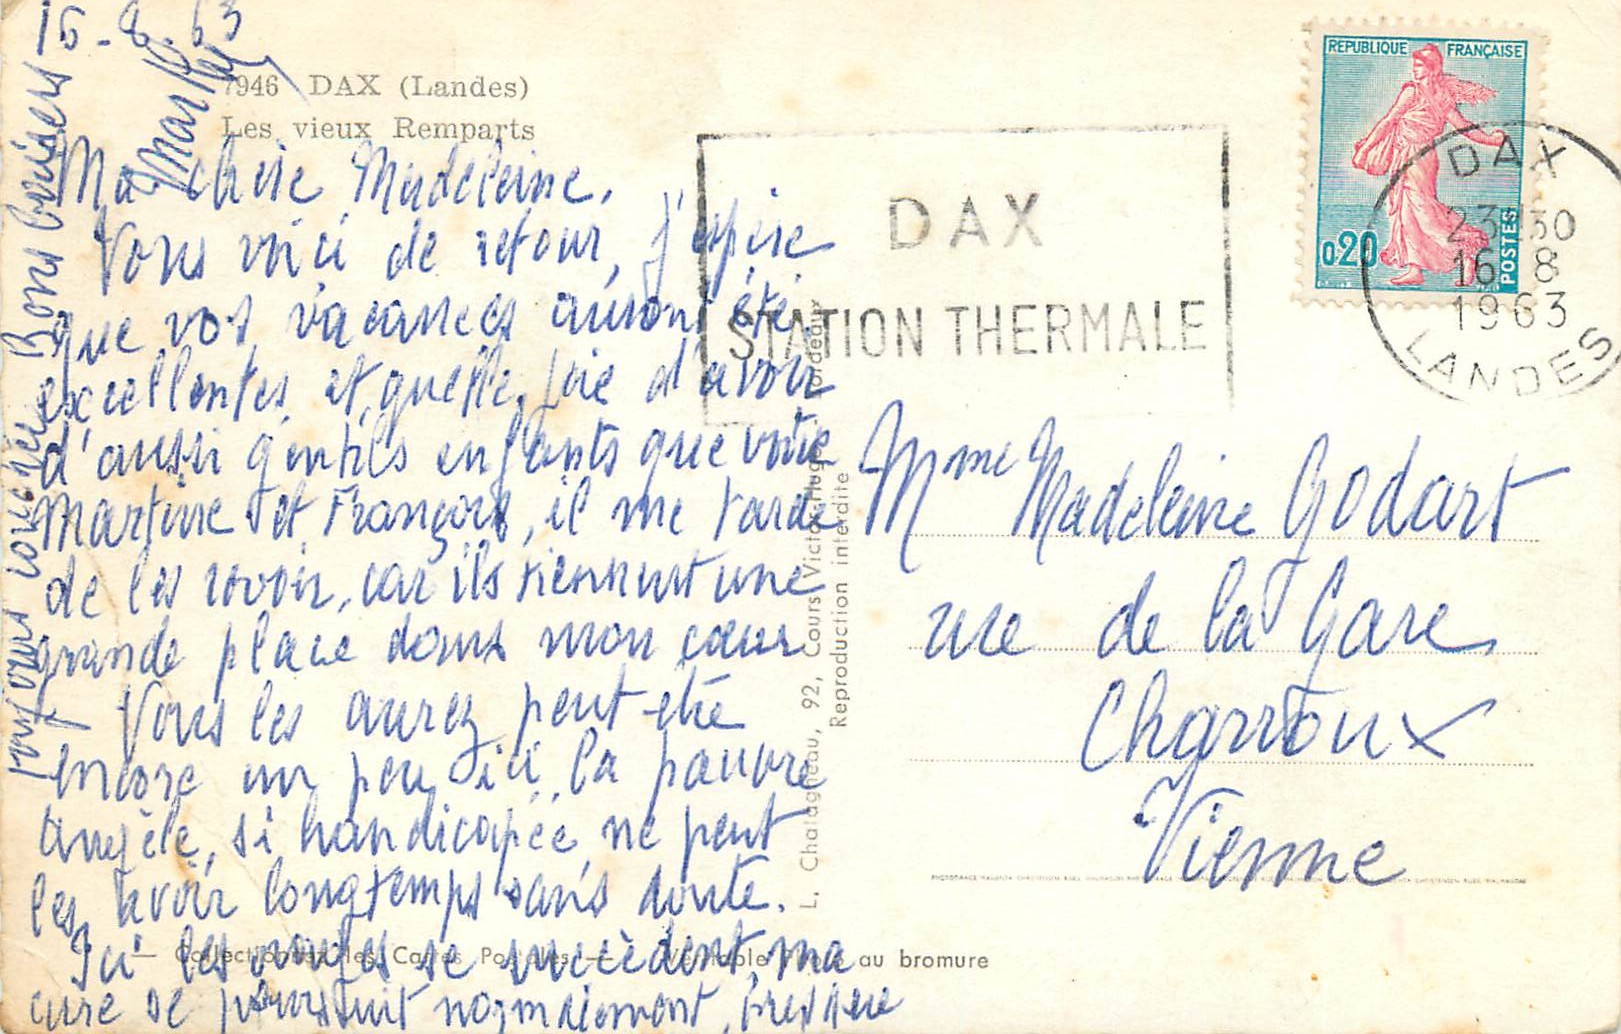 15-8.63
7946 DAX (Landes)
Les vieux Remparts
Ma chère Madeleine,
Vous voici de retour, j'espère
que vos vacances auront été
excellentes et quelle joie d'avoir
d'aussi gentils enfants que votre
Martine et François, il me tarde
de les revoir, car ils tiennent une
grande place dans mon cœur
Vous les aurez peut-être
encore un peu ici, la pauvre
Angèle, si handicapée ne peut
les avoir longtemps sans doute.
Ici les orages se succèdent, ma
cure se poursuit normalement, presque
toujours Bons baisers
REPUBLIQUE FRANÇAISE
0,20
POSTES
DAX
STATION THERMALE
DAX
23H30
16 8
1963
LANDES
Mme Madeleine Godart
rue de la Gare
Charroux
Vienne
L. Chatagneau, 92, Cours Victor-Hugo, Bordeaux
Reproduction interdite
— Collectionnez les Cartes Postales — Véritable Photo au bromure